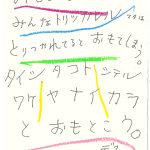 みんなトリッカレル
とりつかれてると おもてしまう。
タイン タコト シテル
ワケ ヤ ナイ カラ
と おもとこう。